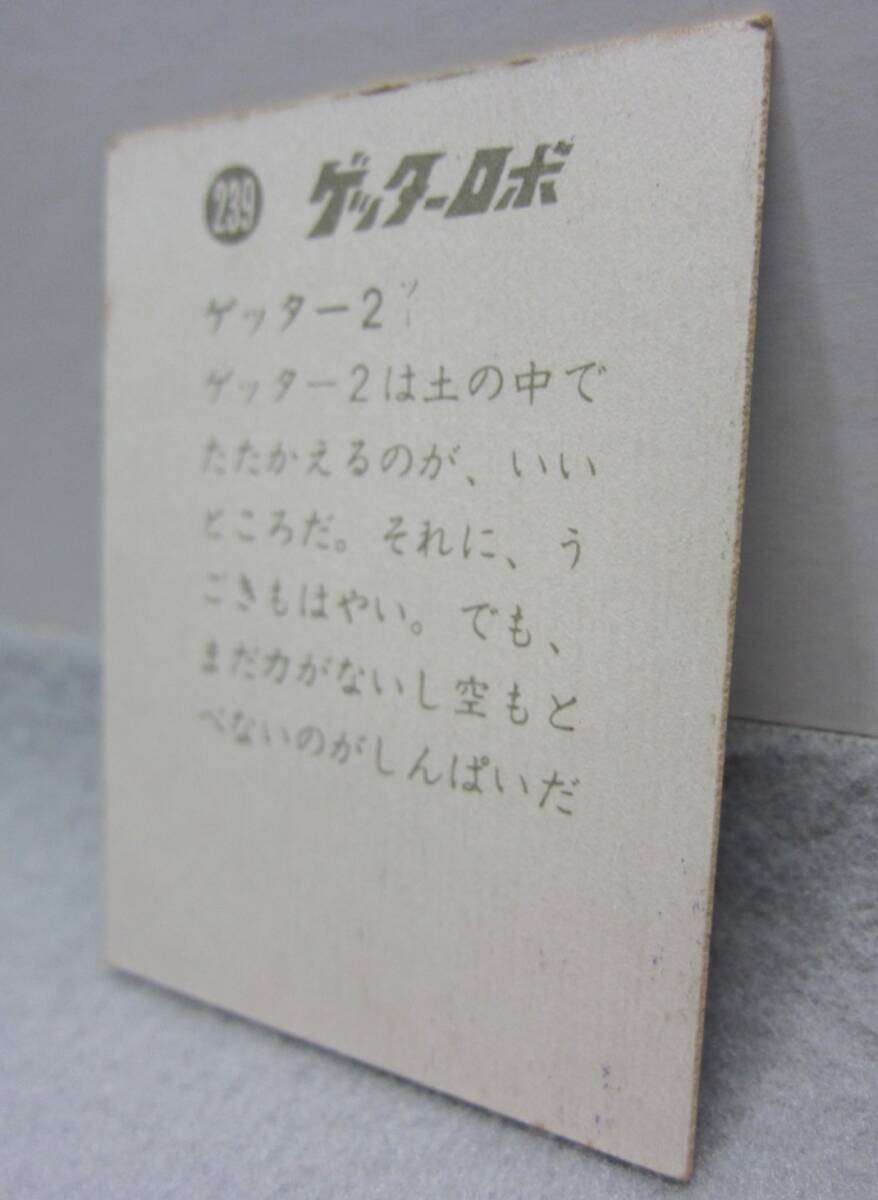 239 ゲッターロボ
ゲッター2ツー
ゲッター2は土の中で
たたかえるのが、いい
ところだ。それに、う
ごきもはやい。でも、
まだ力がないし空もと
べないのがしんぱいだ